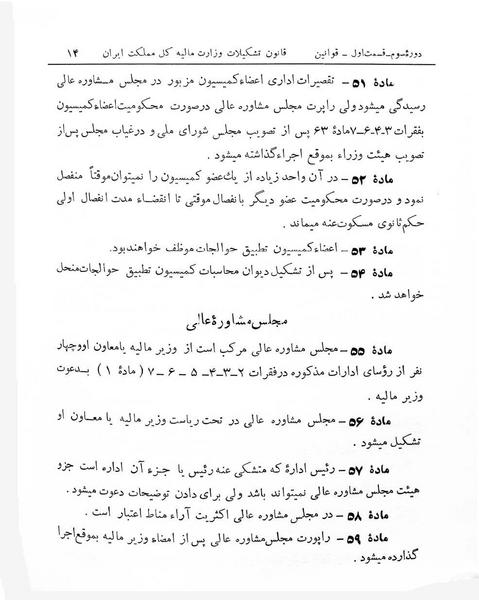 دورهٔ سوم ـ قسمت اول ـ قوانین    قانون تشکیلات وزارت مالیه کل مملکت ایران    ۱۴
مادهٔ ۵۱ ـ تقصیرات اداری اعضاء کمیسیون مزبور در مجلس مشاوره عالی
رسیدگی میشود ولی راپرت مجلس مشاوره عالی درصورت محکومیت اعضاء کمیسیون
بفقرات ۳ـ۴ـ۶ـ۷ مادهٔ ۶۳ پس از تصویب مجلس شورای ملی و در غیاب مجلس پس از
تصویب هیئت وزراء بموقع اجراء گذاشته میشود .
مادهٔ ۵۲ ـ در آن واحد زیاده از یك عضو کمیسیون را نمیتوان موقتاً منفصل
نمود و درصورت محکومیت عضو دیگر بانفصال موقتی تا انقضاء مدت انفصال اولی
حکم ثانوی مسکوت عنه میماند .
مادهٔ ۵۳ ـ اعضاء کمیسیون تطبیق حوالجات موظف خواهند بود.
مادهٔ ۵۴ ـ پس از تشکیل دیوان محاسبات کمیسیون تطبیق حوالجات منحل
خواهد شد .
مجلس مشاورهٔ عالی
مادهٔ ۵۵ ـ مجلس مشاوره عالی مرکب است از وزیر مالیه یا معاون او و چهار
نفر از رؤسای ادارات مذکوره در فقرات ۲ـ۳ـ۴ـ ۵ ـ ۶ ـ ۷ ( مادهٔ ۱ ) بدعوت
وزیر مالیه .
مادهٔ ۵۶ ـ مجلس مشاوره عالی در تحت ریاست وزیر مالیه یا معاون او
تشکیل میشود .
مادهٔ ۵۷ ـ رئیس ادارهٔ که متشکی عنه رئیس یا جزء آن اداره است جزو
هیئت مجلس مشاوره عالی نمیتواند باشد ولی برای دادن توضیحات دعوت میشود.
مادهٔ ۵۸ ـ در مجلس مشاوره عالی اکثریت آراء مناط اعتبار است .
مادهٔ ۵۹ ـ راپورت مجلس مشاوره عالی پس از امضاء وزیر مالیه بموقع اجرا
گذارده میشود .